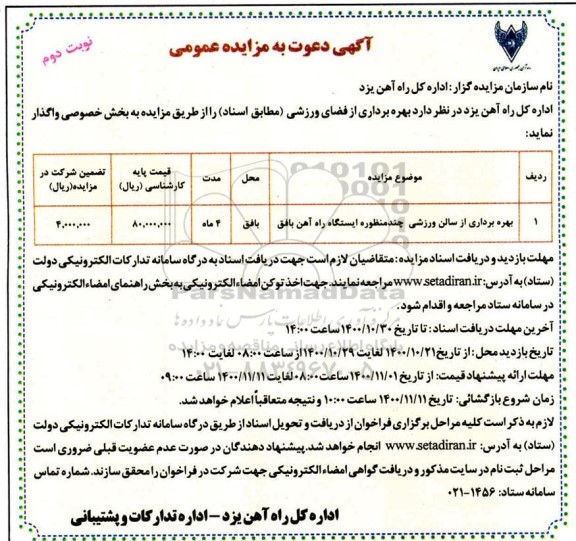 نوبت دوم
آگهی دعوت به مزایده عمومی
نام سازمان مزایده گزار: اداره کل راه آهن یزد
اداره کل راه آهن یزد در نظر دارد بهره برداری از فضای ورزشی (مطابق اسناد) را از طریق مزایده به بخش خصوصی واگذار
نماید:
ردیف موضوع مزایده محل مدت قیمت پایه کارشناسی (ریال) تضمین شرکت در مزایده(ریال)
۱ بهره برداری از سالن ورزشی چندمنظوره ایستگاه راه آهن بافق بافق ۴ ماه ۸۰,۰۰۰,۰۰۰ ۴,۰۰۰,۰۰۰
مهلت بازدید و دریافت اسناد مزایده: متقاضیان لازم است جهت دریافت اسناد به درگاه سامانه تدارکات الکترونیکی دولت
(ستاد) به آدرس: www.setadiran.ir مراجعه نمایند. جهت اخذ توکن امضاء الکترونیکی به بخش راهنمای امضاء الکترونیکی
در سامانه ستاد مراجعه و اقدام شود.
آخرین مهلت دریافت اسناد: تا تاریخ ۱۴۰۰/۱۰/۳۰ ساعت ۱۴:۰۰
تاریخ بازدید محل: از تاریخ ۱۴۰۰/۱۰/۲۱ لغایت ۱۴۰۰/۱۰/۲۹ از ساعت ۰۸:۰۰ لغایت ۱۴:۰۰
مهلت ارائه پیشنهاد قیمت: از تاریخ ۱۴۰۰/۱۱/۰۱ ساعت ۰۸:۰۰ لغایت ۱۴۰۰/۱۱/۱۱ ساعت ۰۹:۰۰
زمان شروع بازگشائی: تاریخ ۱۴۰۰/۱۱/۱۱ ساعت ۱۰:۰۰ و نتیجه متعاقباً اعلام خواهد شد.
لازم به ذکر است کلیه مراحل برگزاری فراخوان از دریافت و تحویل اسناد از طریق درگاه سامانه تدارکات الکترونیکی دولت
(ستاد) به آدرس: www.setadiran.ir انجام خواهد شد. پیشنهاد دهندگان در صورت عدم عضویت قبلی ضروری است
مراحل ثبت نام در سایت مذکور و دریافت گواهی امضاء الکترونیکی جهت شرکت در فراخوان را محقق سازند. شماره تماس
سامانه ستاد: ۱۴۵۶-۰۲۱
اداره کل راه آهن یزد - اداره تدارکات و پشتیبانی
ParsNamadData
پایگاه اطلاع رسانی مناقصه و مزایده
۰۲۱-۸۸۳۴۹۶۷۰-۵